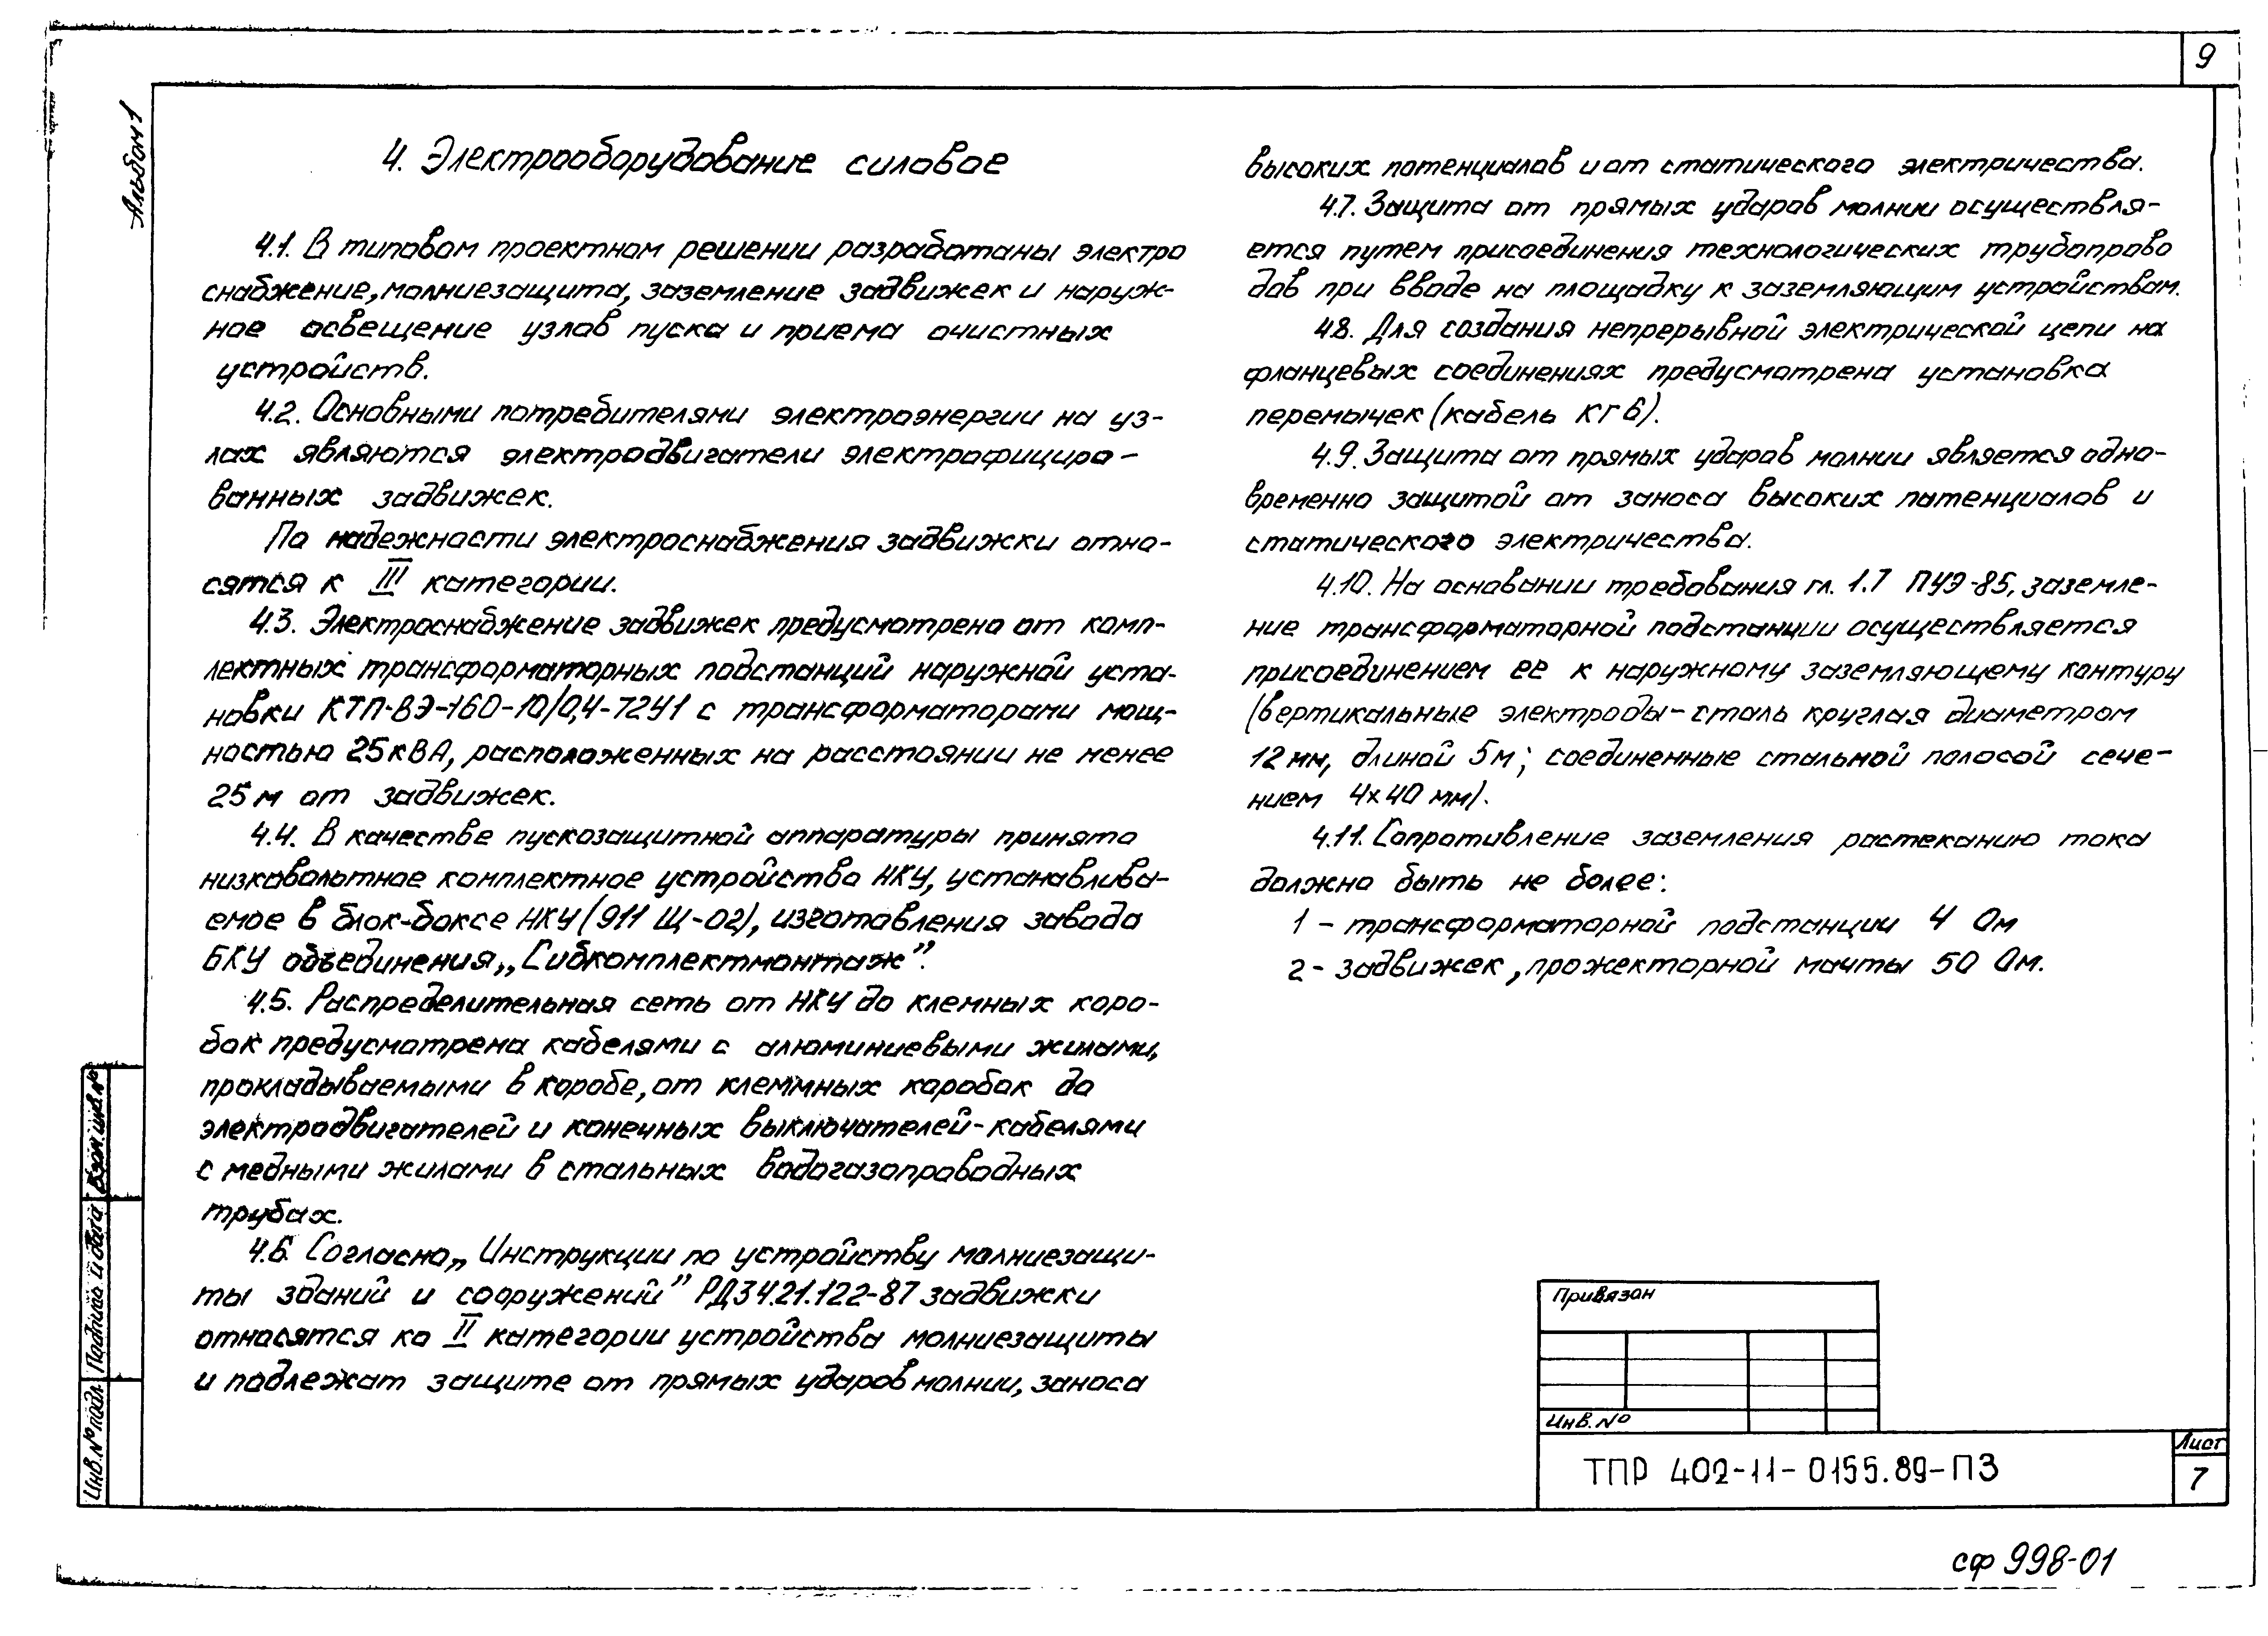 9
Альбом 1
4. Электрооборудование силовое
4.1. В типовом проектном решении разработаны электро
снабжение, молниезащита, заземление задвижек и наруж-
ное освещение узлов пуска и приема очистных
устройств.
4.2. Основными потребителями электроэнергии на уз-
лах являются электродвигатели электрофициро-
ванных задвижек.
По надежности электроснабжения задвижки отно-
сятся к III категории.
4.3. Электроснабжение задвижек предусмотрено от комп-
лектных трансформаторных подстанций наружной уста-
новки КТП-ВЭ-160-10/0,4-72У1 с трансформаторами мощ-
ностью 25кВА, расположенных на расстоянии не менее
25м от задвижек.
4.4. В качестве пускозащитной аппаратуры принято
низковольтное комплектное устройство НКУ, устанавлива-
емое в блок-боксе НКУ (911 Щ-02), изготовления завода
БКУ объединения „Сибкомплектмонтаж”.
4.5. Распределительная сеть от НКУ до клемных коро-
бок предусмотрена кабелями с алюминиевыми жилами,
прокладываемыми в коробе, от клеммных коробок до
электродвигателей и конечных выключателей-кабелями
с медными жилами в стальных водогазопроводных
трубах.
4.6. Согласно „Инструкции по устройству молниезащи-
ты зданий и сооружений” РД34.21.122-87 задвижки
относятся ко II категории устройства молниезащиты
и подлежат защите от прямых ударов молнии, заноса
высоких потенциалов и от статического электричества.
4.7. Защита от прямых ударов молнии осуществля-
ется путем присоединения технологических трубопрово
дов при вводе на площадку к заземляющим устройствам.
4.8. Для создания непрерывной электрической цепи на
фланцевых соединениях предусмотрена установка
перемычек (кабель КГ6).
4.9. Защита от прямых ударов молнии является одно-
временно защитой от заноса высоких потенциалов и
статического электричества.
4.10. На основании требования гл. 1.7 ПУЭ-85, заземле-
ние трансформаторной подстанции осуществляется
присоединением ее к наружному заземляющему контуру
(вертикальные электроды-сталь круглая диаметром
12 мм, длиной 5м; соединенные стальной полосой сече-
нием 4х40 мм).
4.11. Сопротивление заземления растеканию тока
должно быть не более:
1 - трансформаторной подстанции 4 Ом
2 - задвижек, прожекторной мачты 50 Ом.
Взам. инв. №
Подпись и дата
Инв. № подл
Привязан
Инв. №
ТПР 402-11-0155.89-ПЗ
Лист
7
сф 998-01